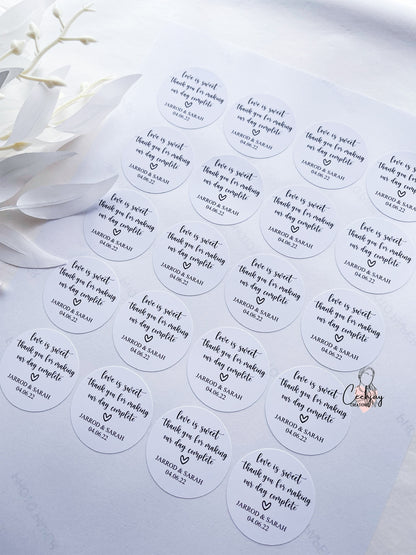 Love is sweet
Thank you for making
our day complete
JARROD & SARAH
04.06.22
Love is sweet
Thank you for making
our day complete
JARROD & SARAH
04.06.22
Love is sweet
Thank you for making
our day complete
JARROD & SARAH
04.06.22
Love is
Thank you for
our day
JARROD
Love is sweet
Thank you for making
our day complete
JARROD & SARAH
04.06.22
Love is sweet
Thank you for making
our day complete
JARROD & SARAH
04.06.22
Love is sweet
Thank you for making
our day complete
JARROD & SARAH
04.06.22
Love is sweet
Thank you for making
our day complete
JARROD & SARAH
04.06.22
Love is sweet
Thank you for making
our day complete
JARROD & SARAH
04.06.22
Love is sweet
Thank you for making
our day complete
JARROD & SARAH
04.06.22
Love is sweet
Thank you for making
our day complete
JARROD & SARAH
04.06.22
Love is sweet
Thank you for making
our day complete
JARROD & SARAH
04.06.22
Love is sweet
Thank you for making
our day complete
JARROD & SARAH
04.06.22
Love is sweet
Thank you for making
our day complete
JARROD & SARAH
04.06.22
Love is sweet
Thank you for making
our day complete
JARROD & SARAH
04.06.22
Love is sweet
Thank you for making
our day complete
JARROD & SARAH
04.06.22
Love is sweet
Thank you for making
our day complete
JARROD & SARAH
04.06.22
Love is sweet
Thank you for making
our day complete
JARROD & SARAH
04.06.22
Love is sweet
Thank you for making
our day complete
JARROD & SARAH
04.06.22
Love is sweet
Thank you for making
our day complete
JARROD & SARAH
04.06.22